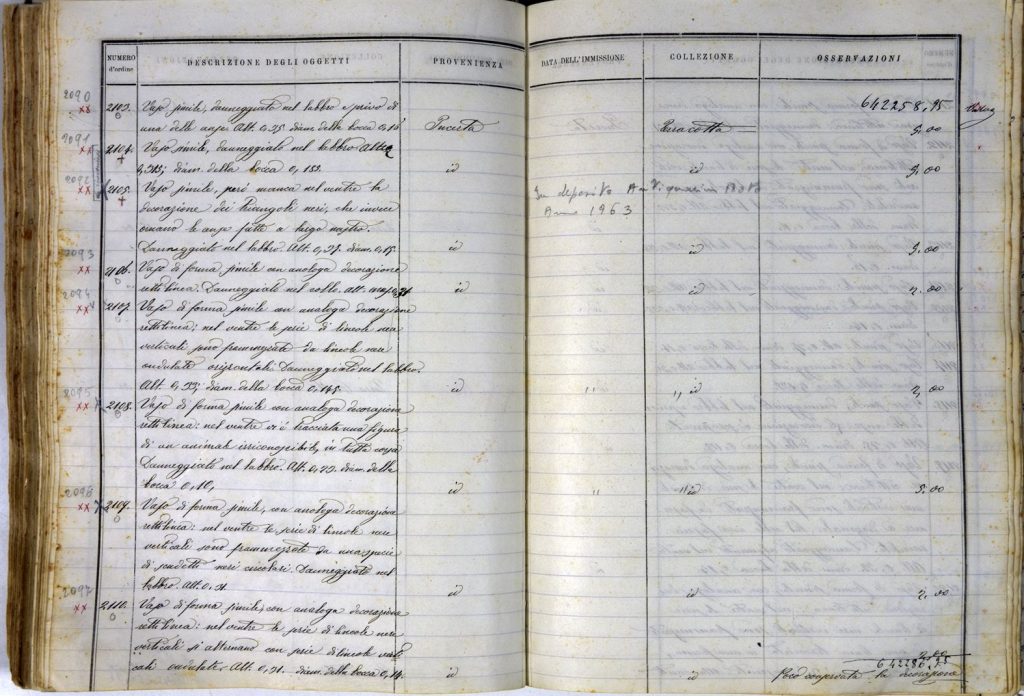 NUMERO d'ordine DESCRIZIONE DEGLI OGGETTI PROVENIENZA DATA DELL'IMMISSIONE COLLEZIONE OSSERVAZIONI
2090
642258,95
2103. Vaso simile, danneggiato nel labbro e privo di
una delle anse Alt. 0,25 diam. della bocca 0,15 Incerta Terracotta 3.00
2091
2104. Vaso simile, danneggiato nel labbro Altez
0,215; diam. della bocca 0,155. id id 3.00
2092
2105. Vaso simile, però manca nel ventre la In deposito Antiquarium
decorazione dei triangoli neri, che invece Anno 1963
ornano le anse fatte a largo nastro.
Danneggiato nel labbro. Alt. 0,27. diam. 0,15. id id 3.00
2093
2106. Vaso di forma simile con analoga decorazione
rettilinea. Danneggiato nel collo. Alt. 0,21 id id 2.00
2094
2107. Vaso di forma simile con analoga decorazione
rettilinea: nel ventre le serie di lineole nere
verticali sono frammezzate da lineole nere
ondulate orizzontali. Danneggiato nel labbro.
Alt. 0,22; diam. della bocca 0,145. id " " id 2,00
2095
2108. Vaso di forma simile con analoga decorazione
rettilinea: nel ventre vi è tracciata una figura
di un animale irriconoscibile, in tutta corsa
Danneggiato nel labbro. Alt. 0,22. diam. della
bocca 0,10, id " " id 5.00
2096
2109. Vaso di forma simile, con analoga decorazione
rettilinea: nel ventre le serie di lineole nere
verticali sono frammezzate da una specie
di scudetti neri circolari. Danneggiato nel
labbro. Alt. 0,21. id id 2,00
2097
2110. Vaso di forma simile, con analoga decorazione
rettilinea: nel ventre le serie di lineole nere
verticali si alternano con serie di lineole verti
cali ondulate. Alt. 0,21. diam. della bocca 0,14. id id Poco conservata la decorazione
2,00
642286,95